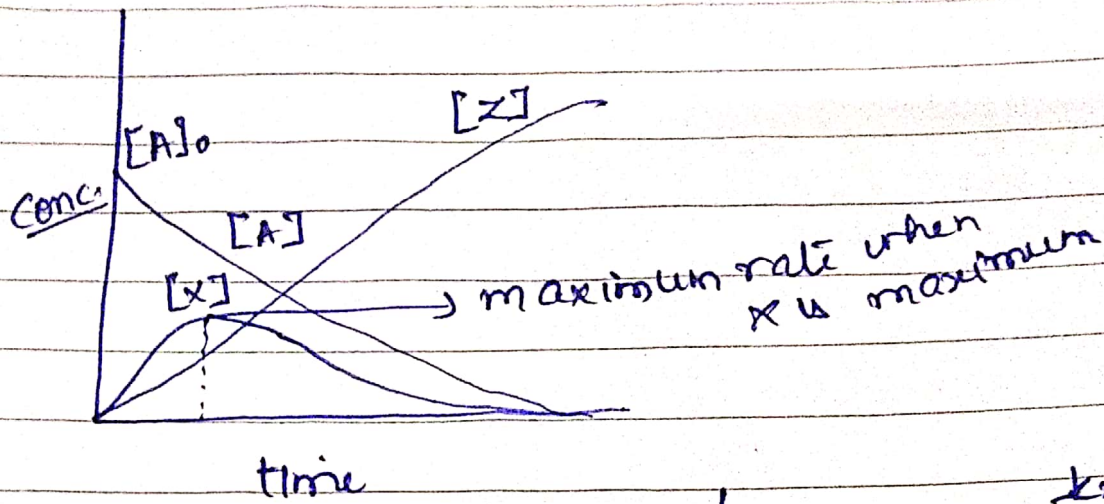 [Z]
[A]₀
Conc.
[A]
[X]
maximum rate when
X is maximum
time
k